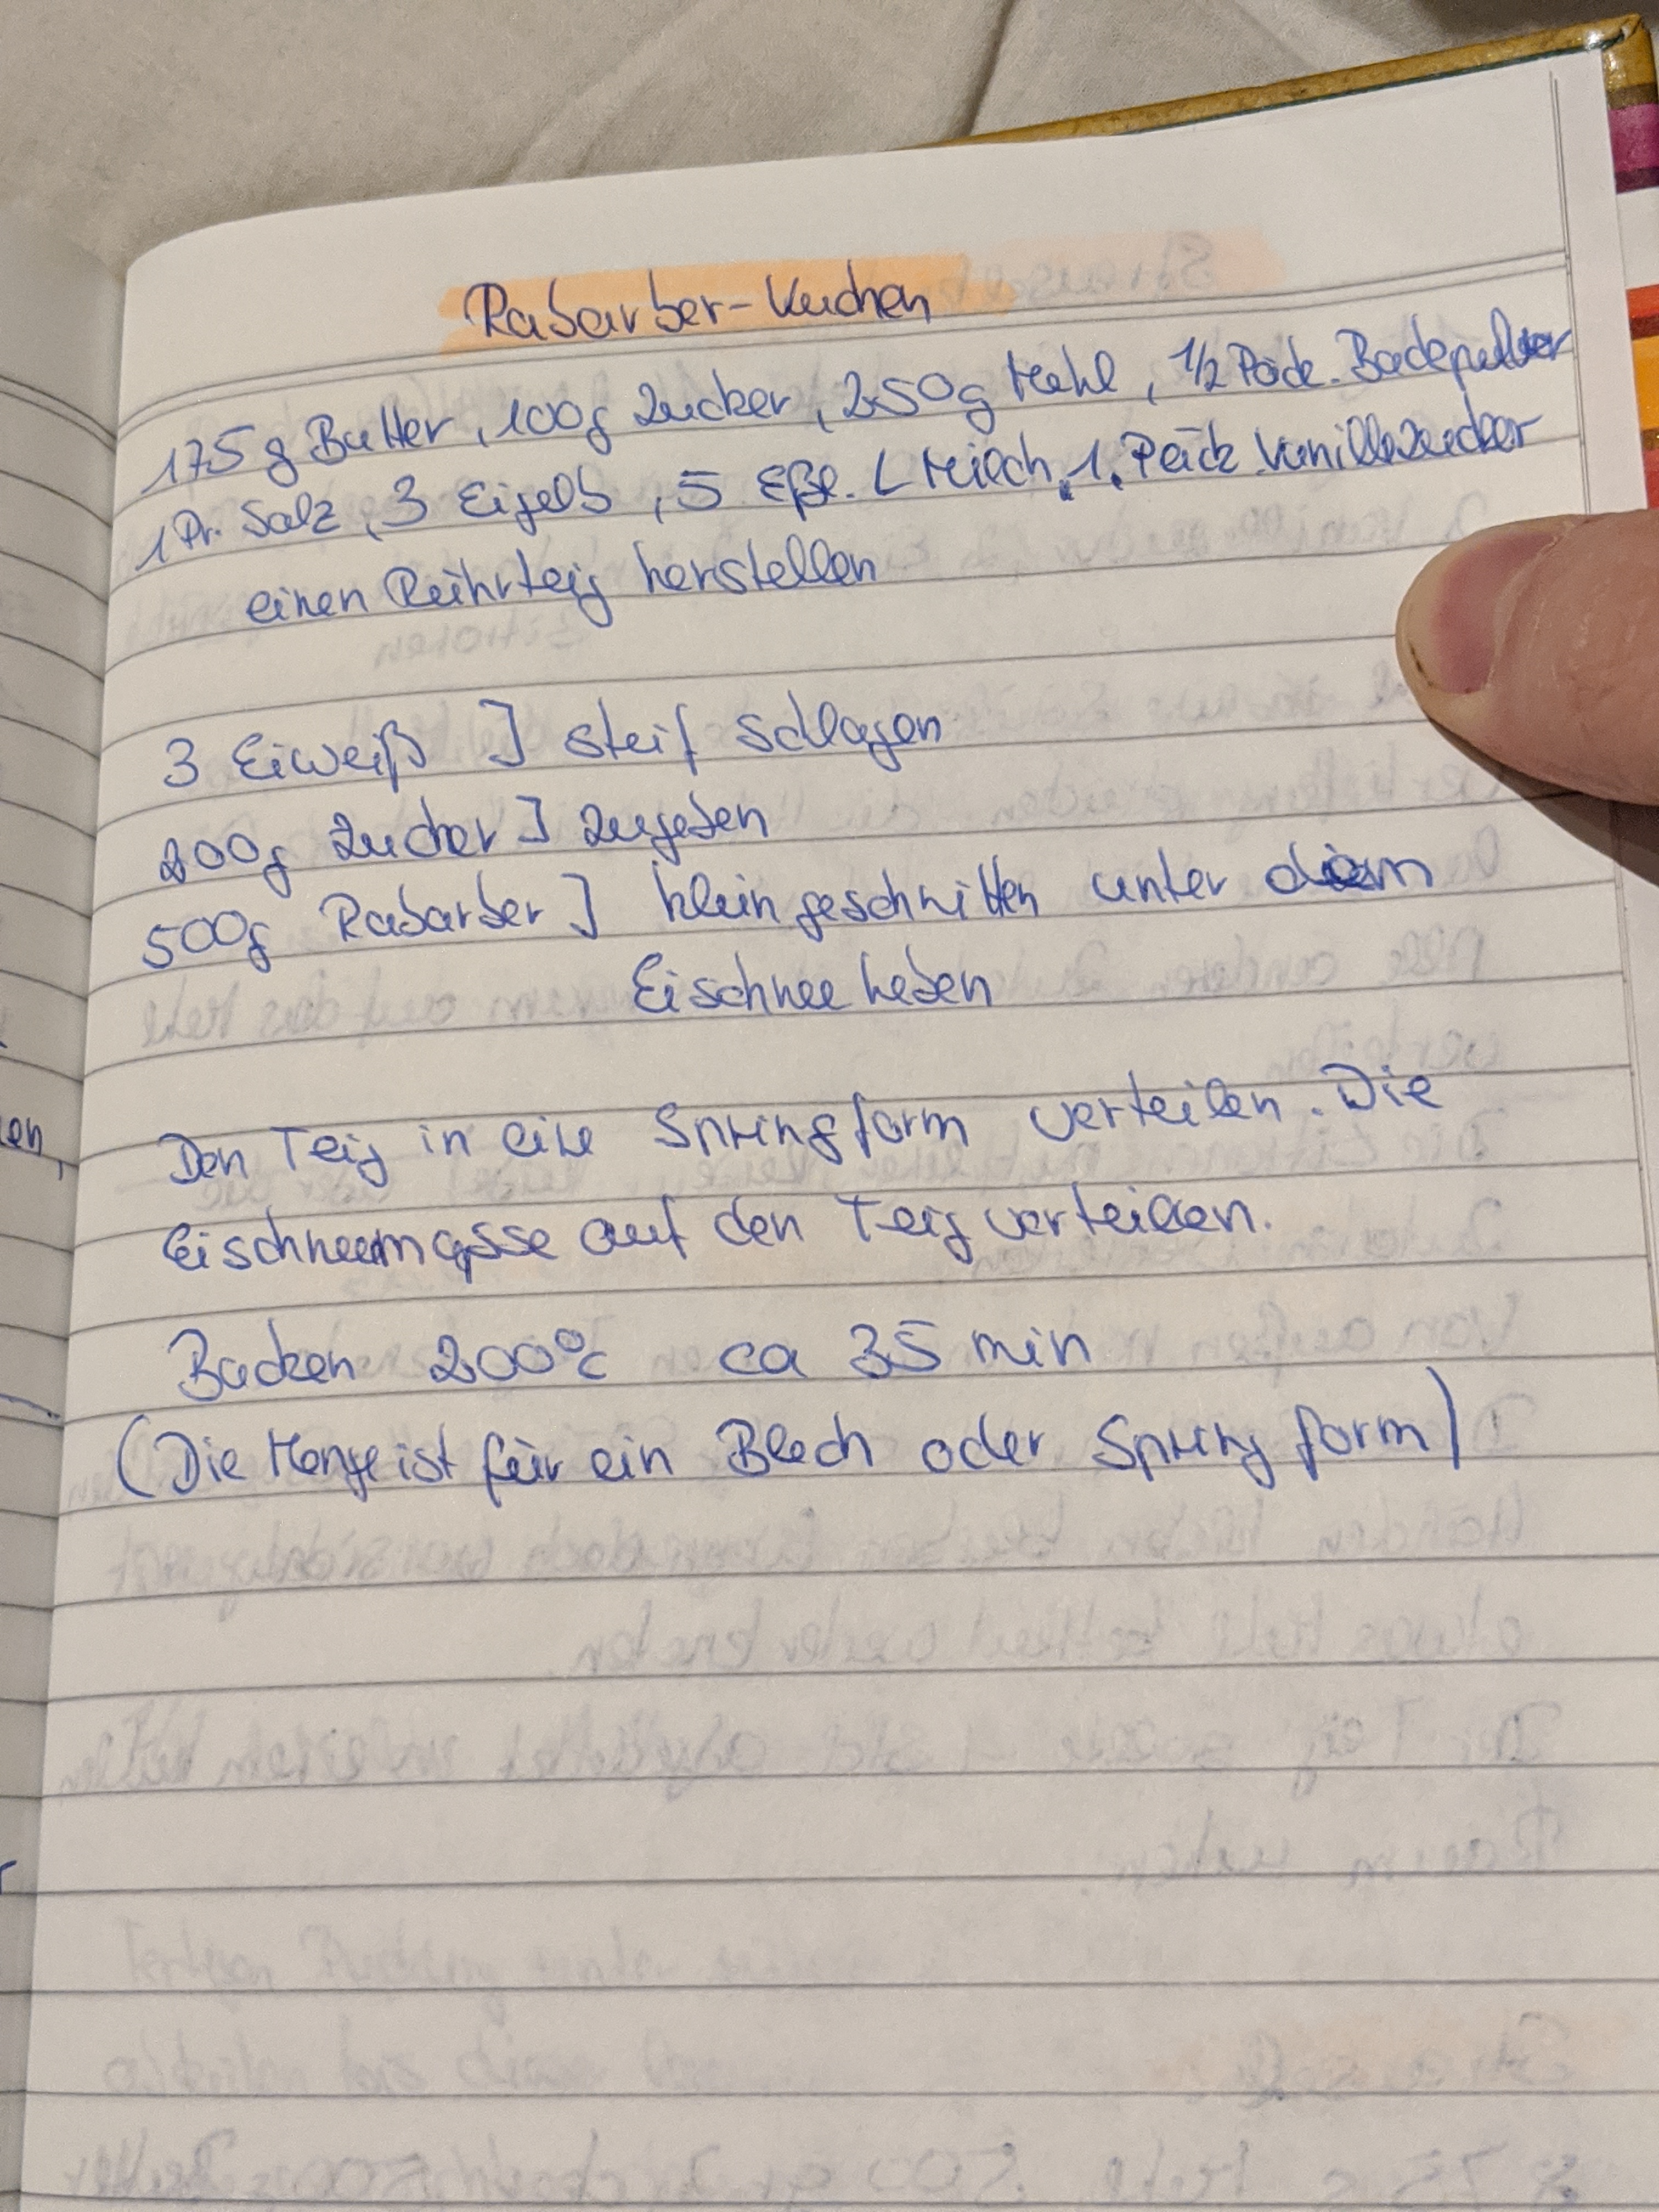 Rabarber-Kuchen
175 g Butter, 100g Zucker, 250g Mehl, 1/2 Päck. Backpulver
1 Pr. Salz, 3 Eigelb, 5 Eßl. Milch, 1. Päck Vanillezucker
einen Rührteig herstellen
3 Eiweiß ] steif schlagen
200g Zucker ] zugeben
500g Rabarber ] kleingeschnitten unter dem
Eischnee heben
Den Teig in eine Springform verteilen. Die
Eischneemasse auf den Teig verteilen.
Backen 200°C ca 35 min
(Die Menge ist für ein Blech oder Springform)